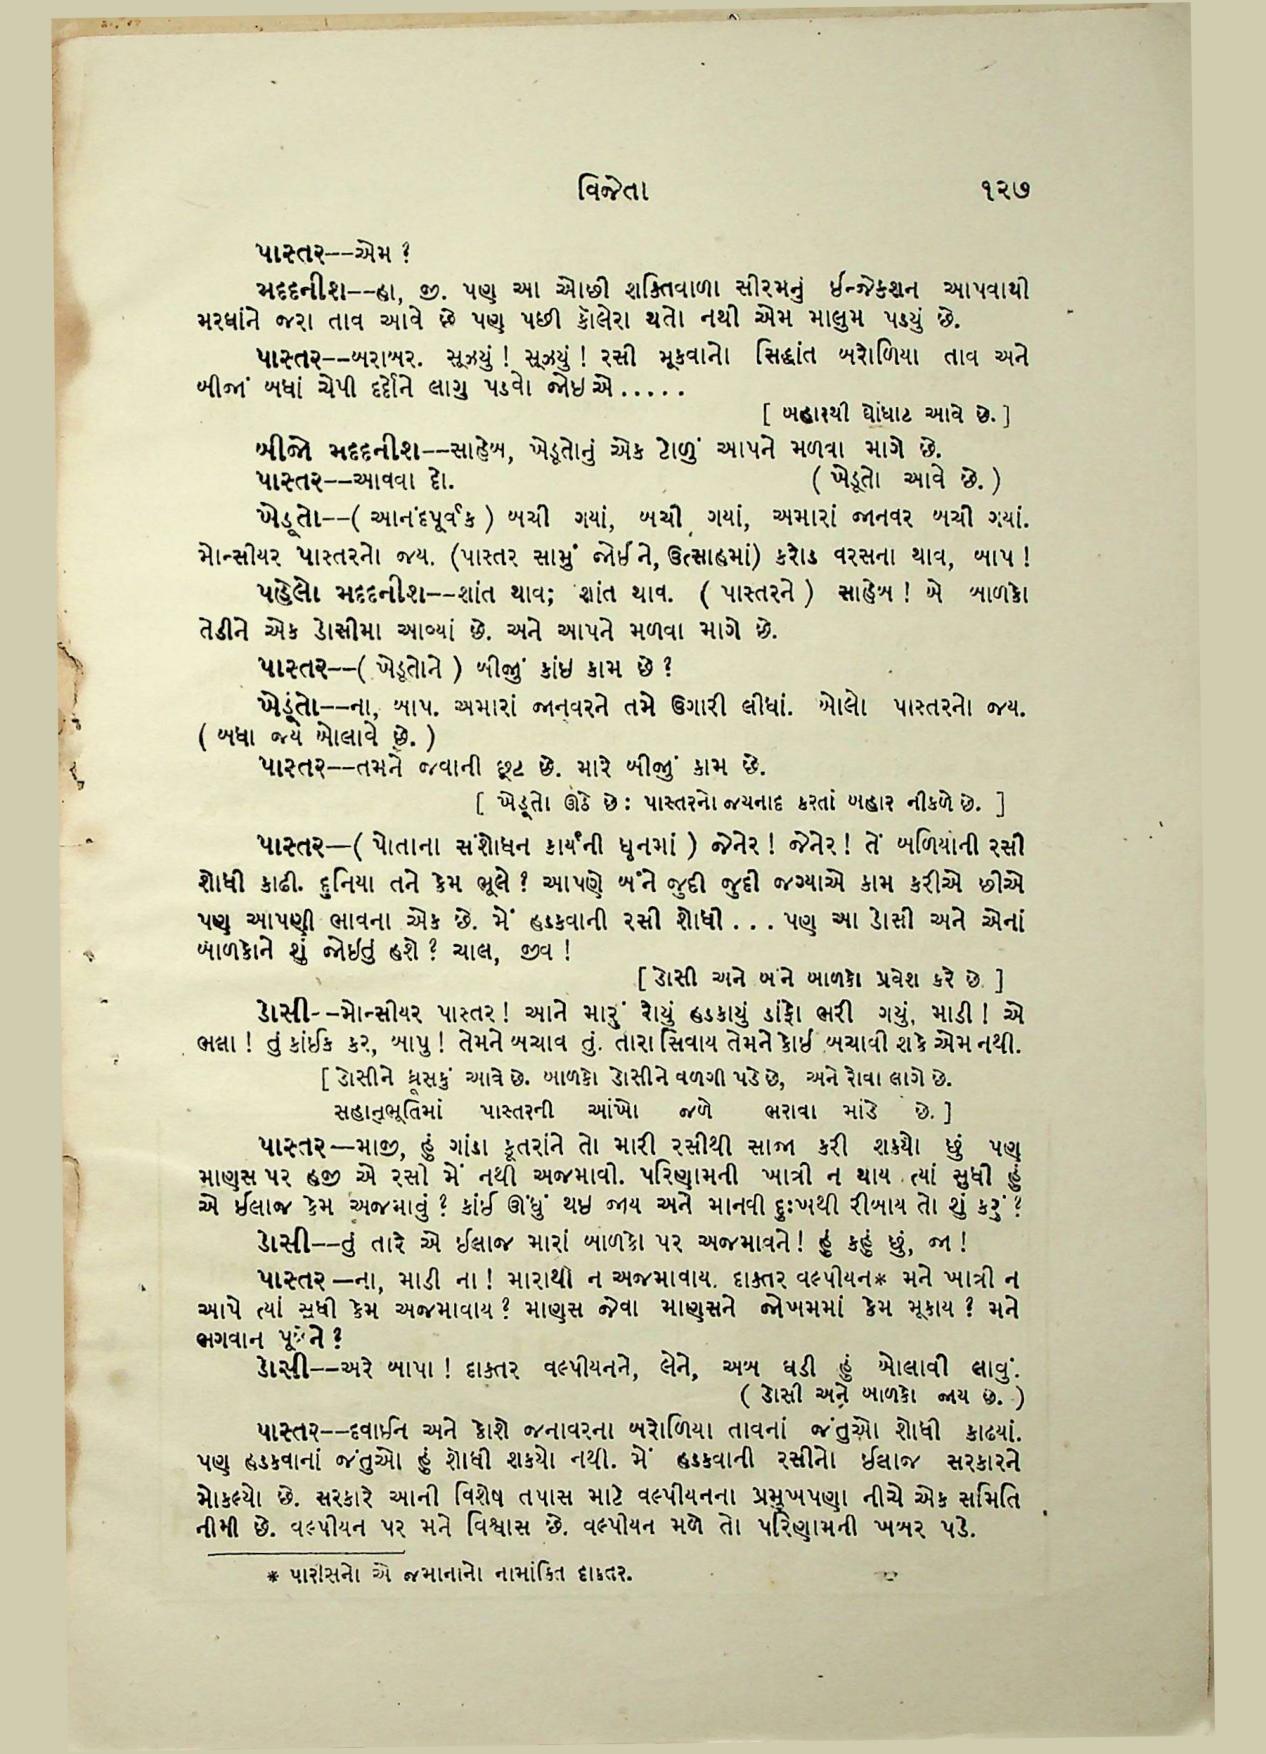 વિજેતા ૧૨૭
પાસ્તર--એમ ?
મદદનીશ--હા, જી. પણ આ ઓછી શક્તિવાળા સીરમનું ઈન્જેકશન આપવાથી
મરઘાંને જરા તાવ આવે છે પણ પછી કૉલેરા થતો નથી એમ માલુમ પડયું છે.
પાસ્તર--બરાબર. સૂઝયું ! સૂઝયું ! રસી મૂકવાનો સિદ્ધાંત બરોળિયા તાવ અને
બીજાં બધાં ચેપી દર્દોને લાગુ પડવો જોઇએ.....
[ બહારથી ઘોંઘાટ આવે છે. ]
બીજો મદદનીશ--સાહેબ, ખેડૂતોનું એક ટોળું આપને મળવા માગે છે.
પાસ્તર--આવવા દો. ( ખેડૂતો આવે છે. )
ખેડૂતો--( આનંદપૂર્વક ) બચી ગયાં, બચી ગયાં, અમારાં જાનવર બચી ગયાં.
મોન્સીયર પાસ્તરનો જય. (પાસ્તર સામું જોઈને, ઉત્સાહમાં) કરોડ વરસના થાવ, બાપ !
પહેલો મદદનીશ--શાંત થાવ; શાંત થાવ. ( પાસ્તરને ) સાહેબ ! બે બાળકો
તેડીને એક ડોસીમા આવ્યાં છે. અને આપને મળવા માગે છે.
પાસ્તર--( ખેડૂતોને ) બીજું કાંઇ કામ છે ?
ખેડૂતો--ના, બાપ. અમારાં જાનવરને તમે ઉગારી લીધાં. બોલો પાસ્તરનો જય.
( બધા જય બોલાવે છે. )
પાસ્તર--તમને જવાની છૂટ છે. મારે બીજું કામ છે.
[ ખેડૂતો ઊઠે છે : પાસ્તરનો જયનાદ કરતાં બહાર નીકળે છે. ]
પાસ્તર—( પોતાના સંશોધન કાર્યની ધૂનમાં ) જેનેર ! જેનેર ! તેં બળિયાની રસી
શોધી કાઢી. દુનિયા તને કેમ ભૂલે ? આપણે બંને જુદી જુદી જગ્યાએ કામ કરીએ છીએ
પણ આપણી ભાવના એક છે. મેં હડકવાની રસી શોધી . . . પણ આ ડોસી અને એનાં
બાળકોને શું જોઇતું હશે ? ચાલ, જીવ !
[ ડોસી અને બંને બાળકો પ્રવેશ કરે છે ]
ડોસી--મોન્સીયર પાસ્તર ! આને મારું રોયું હડકાયું ડાંફો ભરી ગયું, માડી ! એ
ભલા ! તું કાંઈક કર, બાપુ ! તેમને બચાવ તું. તારા સિવાય તેમને કોઈ બચાવી શકે એમ નથી.
[ ડોસીને ધ્રૂસકું આવે છે. બાળકો ડોસીને વળગી પડે છે, અને રોવા લાગે છે.
સહાનુભૂતિમાં પાસ્તરની આંખો જળે ભરાવા માંડે છે. ]
પાસ્તર—માજી, હું ગાંડા કૂતરાંને તો મારી રસીથી સાજા કરી શકયો છું પણ
માણસ પર હજી એ રસી મેં નથી અજમાવી. પરિણામની ખાત્રી ન થાય ત્યાં સુધી હું
એ ઈલાજ કેમ અજમાવું ? કાંઈ ઊંધું થઇ જાય અને માનવી દુઃખથી રીબાય તો શું કરું ?
ડોસી--તું તારે એ ઈલાજ મારાં બાળકો પર અજમાવને ! હું કહું છું, જા !
પાસ્તર—ના, માડી ના ! મારાથી ન અજમાવાય. દાક્તર વલ્પીયન* મને ખાત્રી ન
આપે ત્યાં સુધી કેમ અજમાવાય ? માણસ જેવા માણસને જોખમમાં કેમ મૂકાય ? મને
ભગવાન પૂછેને ?
ડોસી--અરે બાપા ! દાક્તર વલ્પીયનને, લેને, અબ ઘડી હું બોલાવી લાવું.
( ડોસી અને બાળકો જાય છે. )
પાસ્તર--દવાઈને અને કોશે જનાવરના બરોળિયા તાવનાં જંતુઓ શોધી કાઢયાં.
પણ હડકવાનાં જંતુઓ હું શોધી શકયો નથી. મેં હડકવાની રસીનો ઈલાજ સરકારને
મોકલ્યો છે. સરકારે આની વિશેષ તપાસ માટે વલ્પીયનના પ્રમુખપણા નીચે એક સમિતિ
નીમી છે. વલ્પીયન પર મને વિશ્વાસ છે. વલ્પીયન મળે તો પરિણામની ખબર પડે.
* પારીસનો એ જમાનાનો નામાંકિત દાકતર.